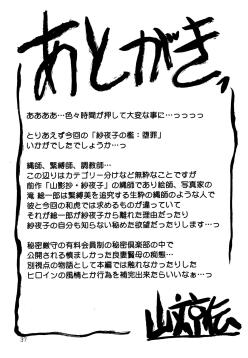 あとがき
ああああ…色々時間が押して大変な事に…っっっっ
とりあえず今回の「紗夜子の檻：堕罪」
いかがでしたでしょうか…っ
縄師、緊縛師、調教師…
この辺りはカテゴリー分けなど無粋なことですが
前作「山影抄・紗夜子」の縄師であり絵師、写真家の
滝 総一郎は緊縛美を追究する生粋の縄師のような人で
彼と今回の和虎では求めるものが違っていて
それが総一郎が紗夜子から離れた理由だったり
紗夜子の自分も知らない秘めた欲望だったりします…っ
秘密厳守の有料会員制の秘密倶楽部の中で
公開される慎ましかった良妻賢母の痴態…
別視点の物語として本編では触れなかったりした
ヒロインの風情とか行為を補完出来たらいいなぁ…っ
山文京伝
37